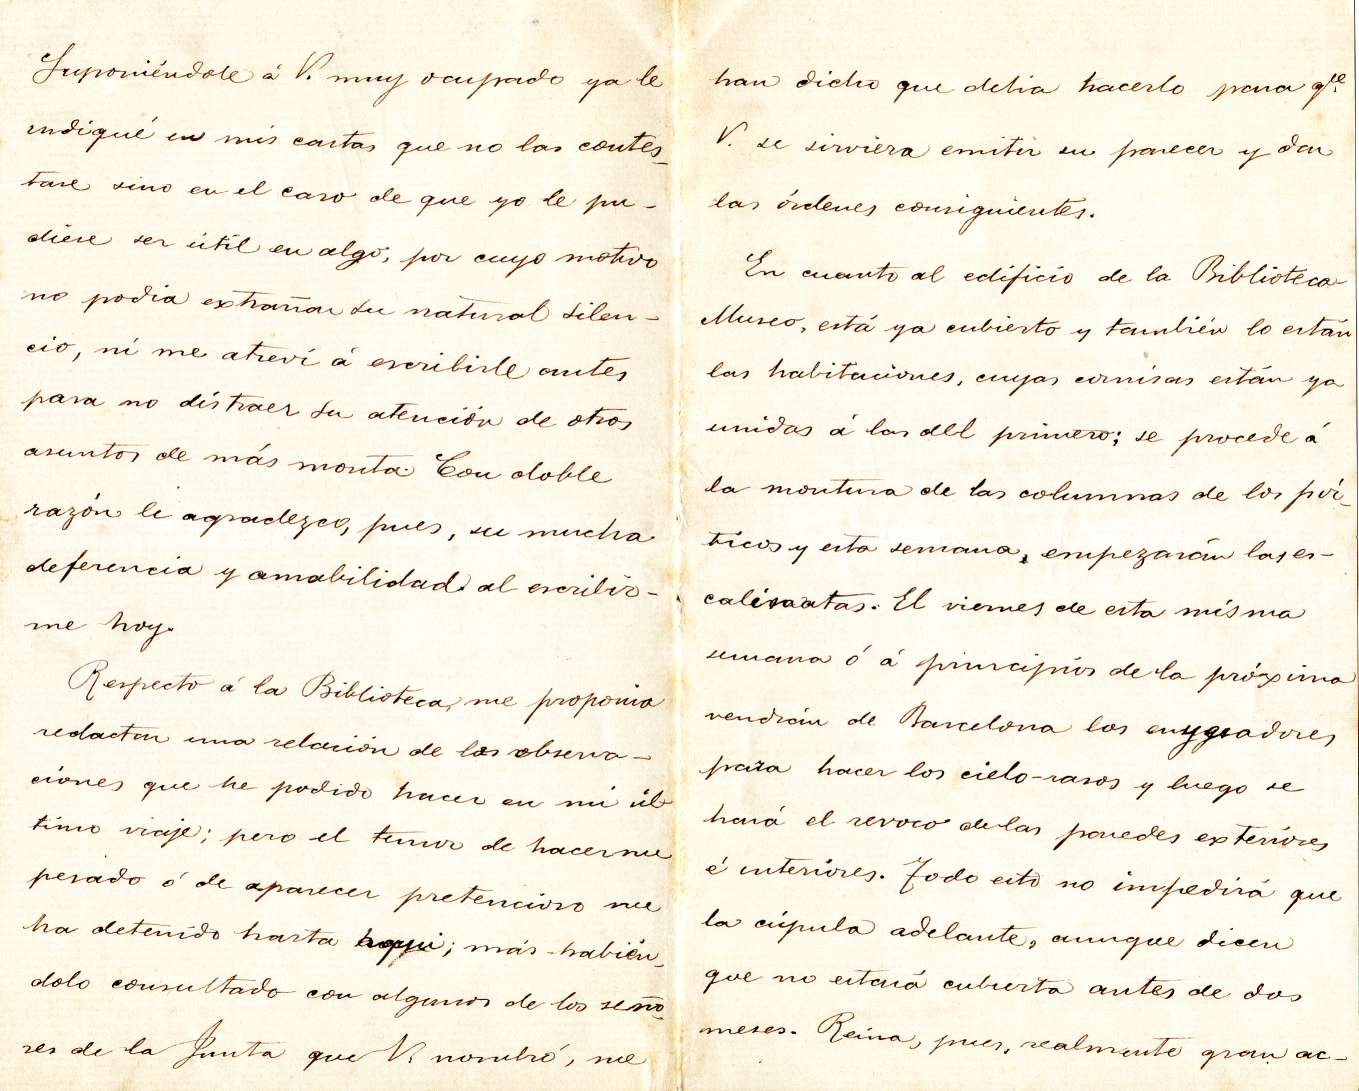 Suponiéndole á V. muy ocupado ya le
indiqué en mis cartas que no las contes-
tase sino en el caso de que yo le pu-
diese ser útil en algo, por cuyo motivo
no podia extrañar su natural silen-
cio, ni me atreví á escribirle antes
para no distraer su atención de otros
asuntos de más monta. Con doble
razón le agradezco, pues, su mucha
deferencia y amabilidad al escribir-
me hoy.
Respecto á la Biblioteca, me proponia
redactar una relación de las observa-
ciones que he podido hacer en mi úl-
timo viaje; pero el temor de hacerme
pesado ó de aparecer pretencioso me
ha detenido hasta aqui; más habién-
dolo consultado con algunos de los seño-
res de la Junta que V. nombró, me
han dicho que debia hacerlo para qᵘᵉ
V. se sirviera emitir su parecer y dar
las órdenes consiguientes.
En cuanto al edificio de la Biblioteca-
Museo, está ya cubierto y también lo están
las habitaciones, cuyas cornisas están ya
unidas á las del primero; se procede á
la montura de las columnas de los pór-
ticos y esta semana, empezarán las es-
calinatas. El viernes de esta misma
semana ó á principios de la próxima
vendrán de Barcelona los enyesadores
para hacer los cielo-rasos y luego se
hará el revoco de las paredes exteriores
é interiores. Todo esto no impedirá que
la cúpula adelante, aunque dicen
que no estará cubierta antes de dos
meses. Reina, pues, realmente gran ac-